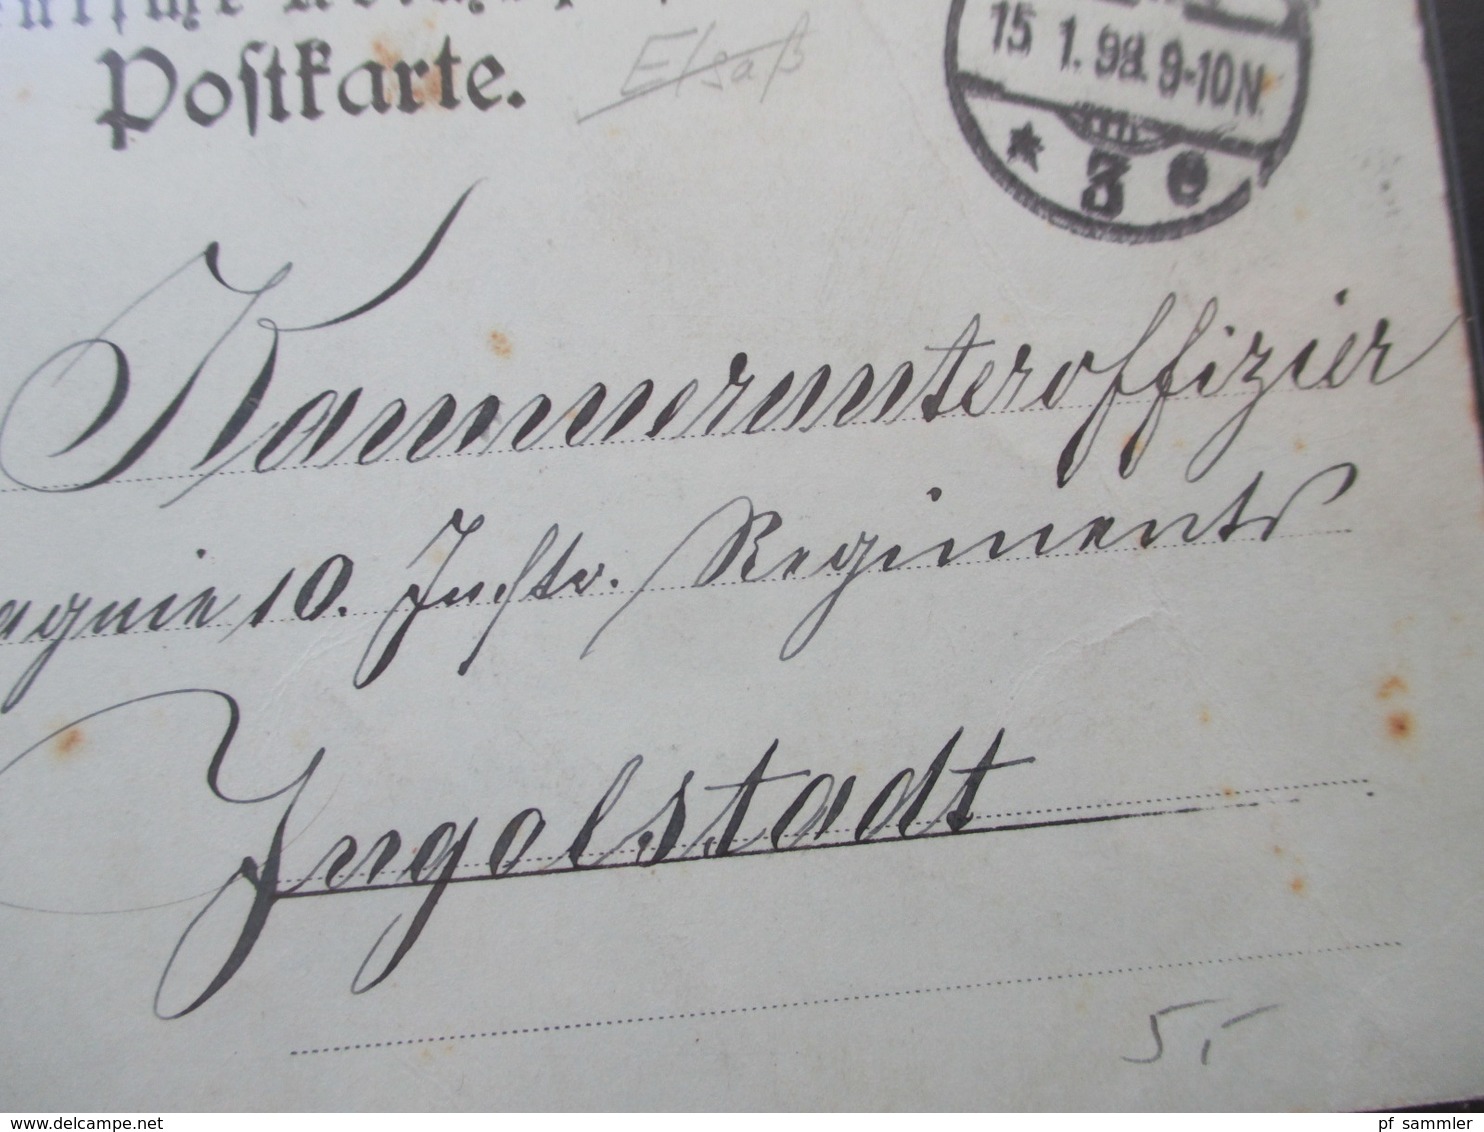 Postkarte.
Elsaß
15 1.98. 9-10N.
* 3 e
Kammerunteroffizier
agnie 10. Inftr. Regiments
Ingolstadt
5,-
pf_sammler